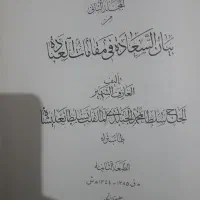 المجلد الثاني
من
بيان السعادة في مقامات العبادة
تأليف
العارف الشهير
الحاج سلطان محمد الجنابذي الملقب بسلطان علیشاه
طاب ثراه
الطبعة الثانية